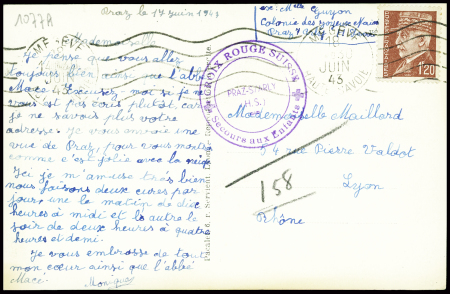 1077A
Praz le 17 juin 1943
Mademoiselle
Je pense que vous allez
toujours bien, ainsi que l'abbé
Macé. Excusez moi si je ne
vous est pas écris plutôt, car
je ne savais plus votre
adresse. Je vous envoie une
vue de Praz, pour vous montr
comme c'est jolie avec la neige
Ici je m'amuse très bien
nous faisons deux cures par
jour une la matin de dix
heures à midi et la autre le
soir de deux heures à quatre
heures et demi.
Je vous embrasse de tout
mon cœur ainsi que l'abbé
Macé.
Monique
exp: Melle Guyon
Colonie des joyeux
Praz
JUIN
43
1F20
CROIX ROUGE SUISSE
PRAZ-S/ARLY
H.S.
Secours aux Enfants
Mademoiselle Maillard
54 rue Pierre Valdot
Lyon
Rhône
158